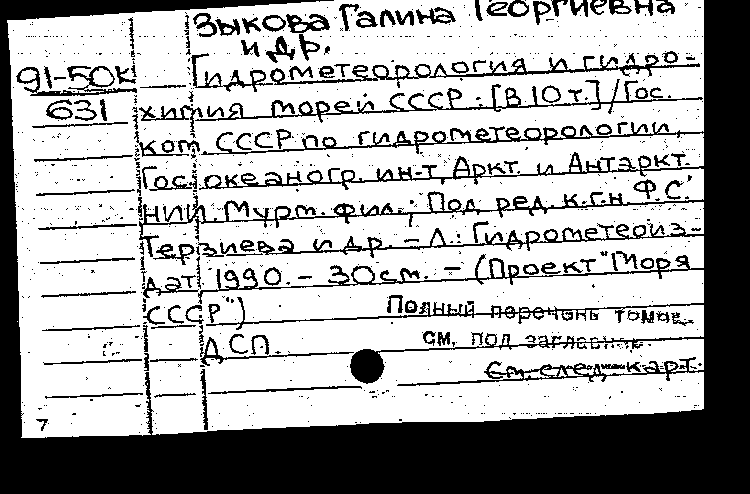 Зыкова Галина Георгиевна
и др.
91-50К
631
Гидрометеорология и гидро-
химия морей СССР : [В 10 т.] / Гос.
ком. СССР по гидрометеорологии,
Гос. океаногр. ин-т, Аркт. и Антаркт.
НИИ. Мурм. фил. ; Под ред. к.г.н. Ф.С.
Терзиева и др. – Л. : Гидрометеоиз-
дат 1990. – 30 см. – (Проект "Моря
СССР")
Полный перечень томов
ДСП.
см. под заглавием.
См. след. карт.
7